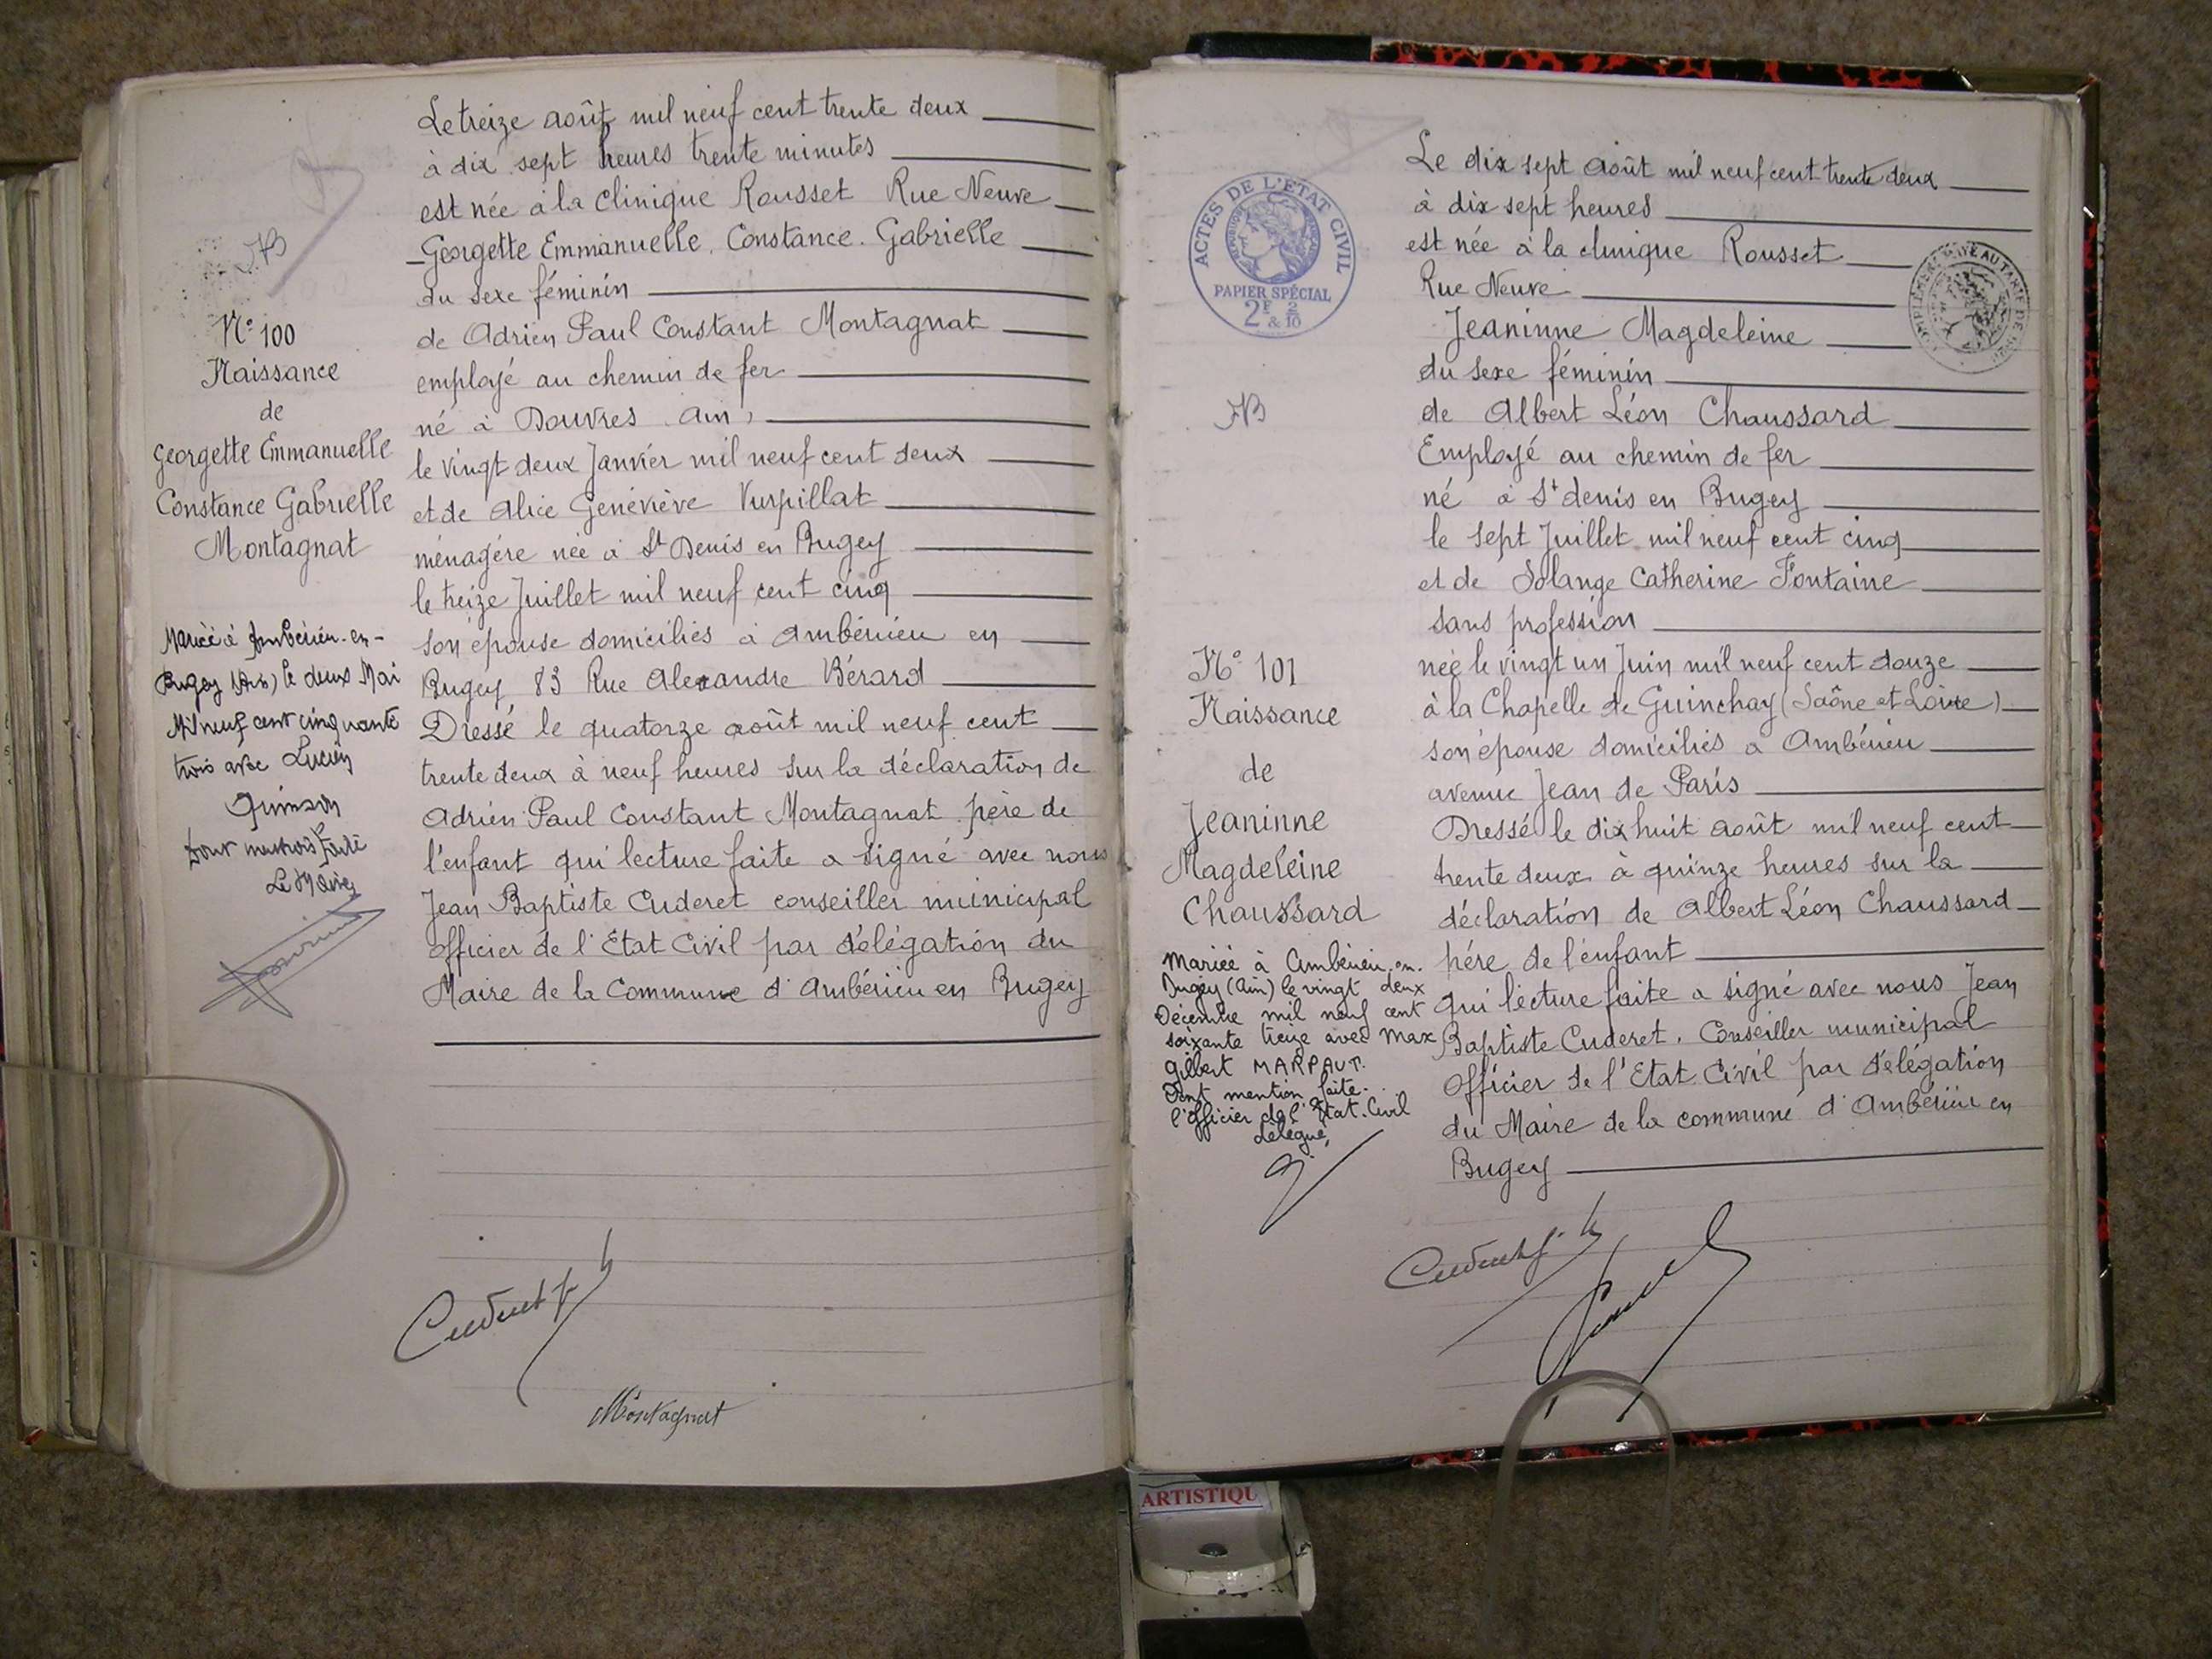 N° 100
Naissance
de
Georgette Emmanuelle
Constance Gabrielle
Montagnat
Mariée à Ambérieu-en-
Bugey (Ain) le deux Mai
Mil neuf cent cinquante
trois avec Lucien
Quinson
Dont mention faite
Le Maire
Le treize août mil neuf cent trente deux
à dix sept heures trente minutes
est née à la clinique Rousset Rue Neuve
Georgette Emmanuelle. Constance. Gabrielle
du sexe féminin
de Adrien Paul Constant Montagnat
employé au chemin de fer
né à Douvres Ain,
le vingt deux Janvier mil neuf cent deux
et de Alice Geneviève Vurpillat
ménagère née à St Denis en Bugey
le treize Juillet mil neuf cent cinq
son épouse domiciliés à Ambérieu en
Bugey 83 Rue Alexandre Bérard
Dressé le quatorze août mil neuf cent
trente deux à neuf heures sur la déclaration de
Adrien Paul Constant Montagnat père de
l'enfant qui lecture faite a signé avec nous
Jean Baptiste Cuderet conseiller municipal
officier de l'Etat Civil par délégation du
Maire de la Commune d'Ambérieu en Bugey
Cuderet J
Montagnat
ACTES DE L'ETAT CIVIL
PAPIER SPÉCIAL
2F & 2/10
N° 101
Naissance
de
Jeaninne
Magdeleine
Chaussard
Mariée à Ambérieu-en-
Bugey (Ain) le vingt deux
Décembre mil neuf cent
soixante treize avec Max
Gilbert MARPAUT.
Dont mention faite.
l'Officier de l'Etat-Civil
délégué,
Le dix sept août mil neuf cent trente deux
à dix sept heures
est née à la clinique Rousset
Rue Neuve
Jeaninne Magdeleine
du sexe féminin
de Albert Léon Chaussard
Employé au chemin de fer
né à St denis en Bugey
le sept Juillet mil neuf cent cinq
et de Solange Catherine Fontaine
sans profession
née le vingt un Juin mil neuf cent douze
à la Chapelle de Guinchay (Saône et Loire)
son épouse domiciliés à Ambérieu
avenue Jean de Paris
Dressé le dix huit août mil neuf cent
trente deux à quinze heures sur la
déclaration de Albert Léon Chaussard
père de l'enfant
qui lecture faite a signé avec nous Jean
Baptiste Cuderet. Conseiller municipal
Officier de l'Etat Civil par délégation
du Maire de la commune d'Ambérieu en
Bugey
Cuderet J
ARTISTIQU